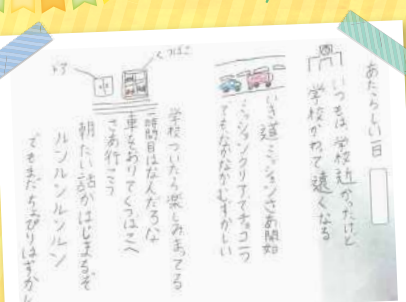 あたらしい一日
いつもは学校近かったけど
学校がかわって遠くなる
いき道ミッションさあ開始
ミッションクリアでチョコ一つ
でもなかなかむずかしい
くつばこ
ドア
学校ついたら楽しみまってる
一時間目はなんだろな
車をおりてくつばこへ
さあ行こう
朝たい話がはじまるぞ
ルンルンルンルン
でもまだちょぴりはずかし